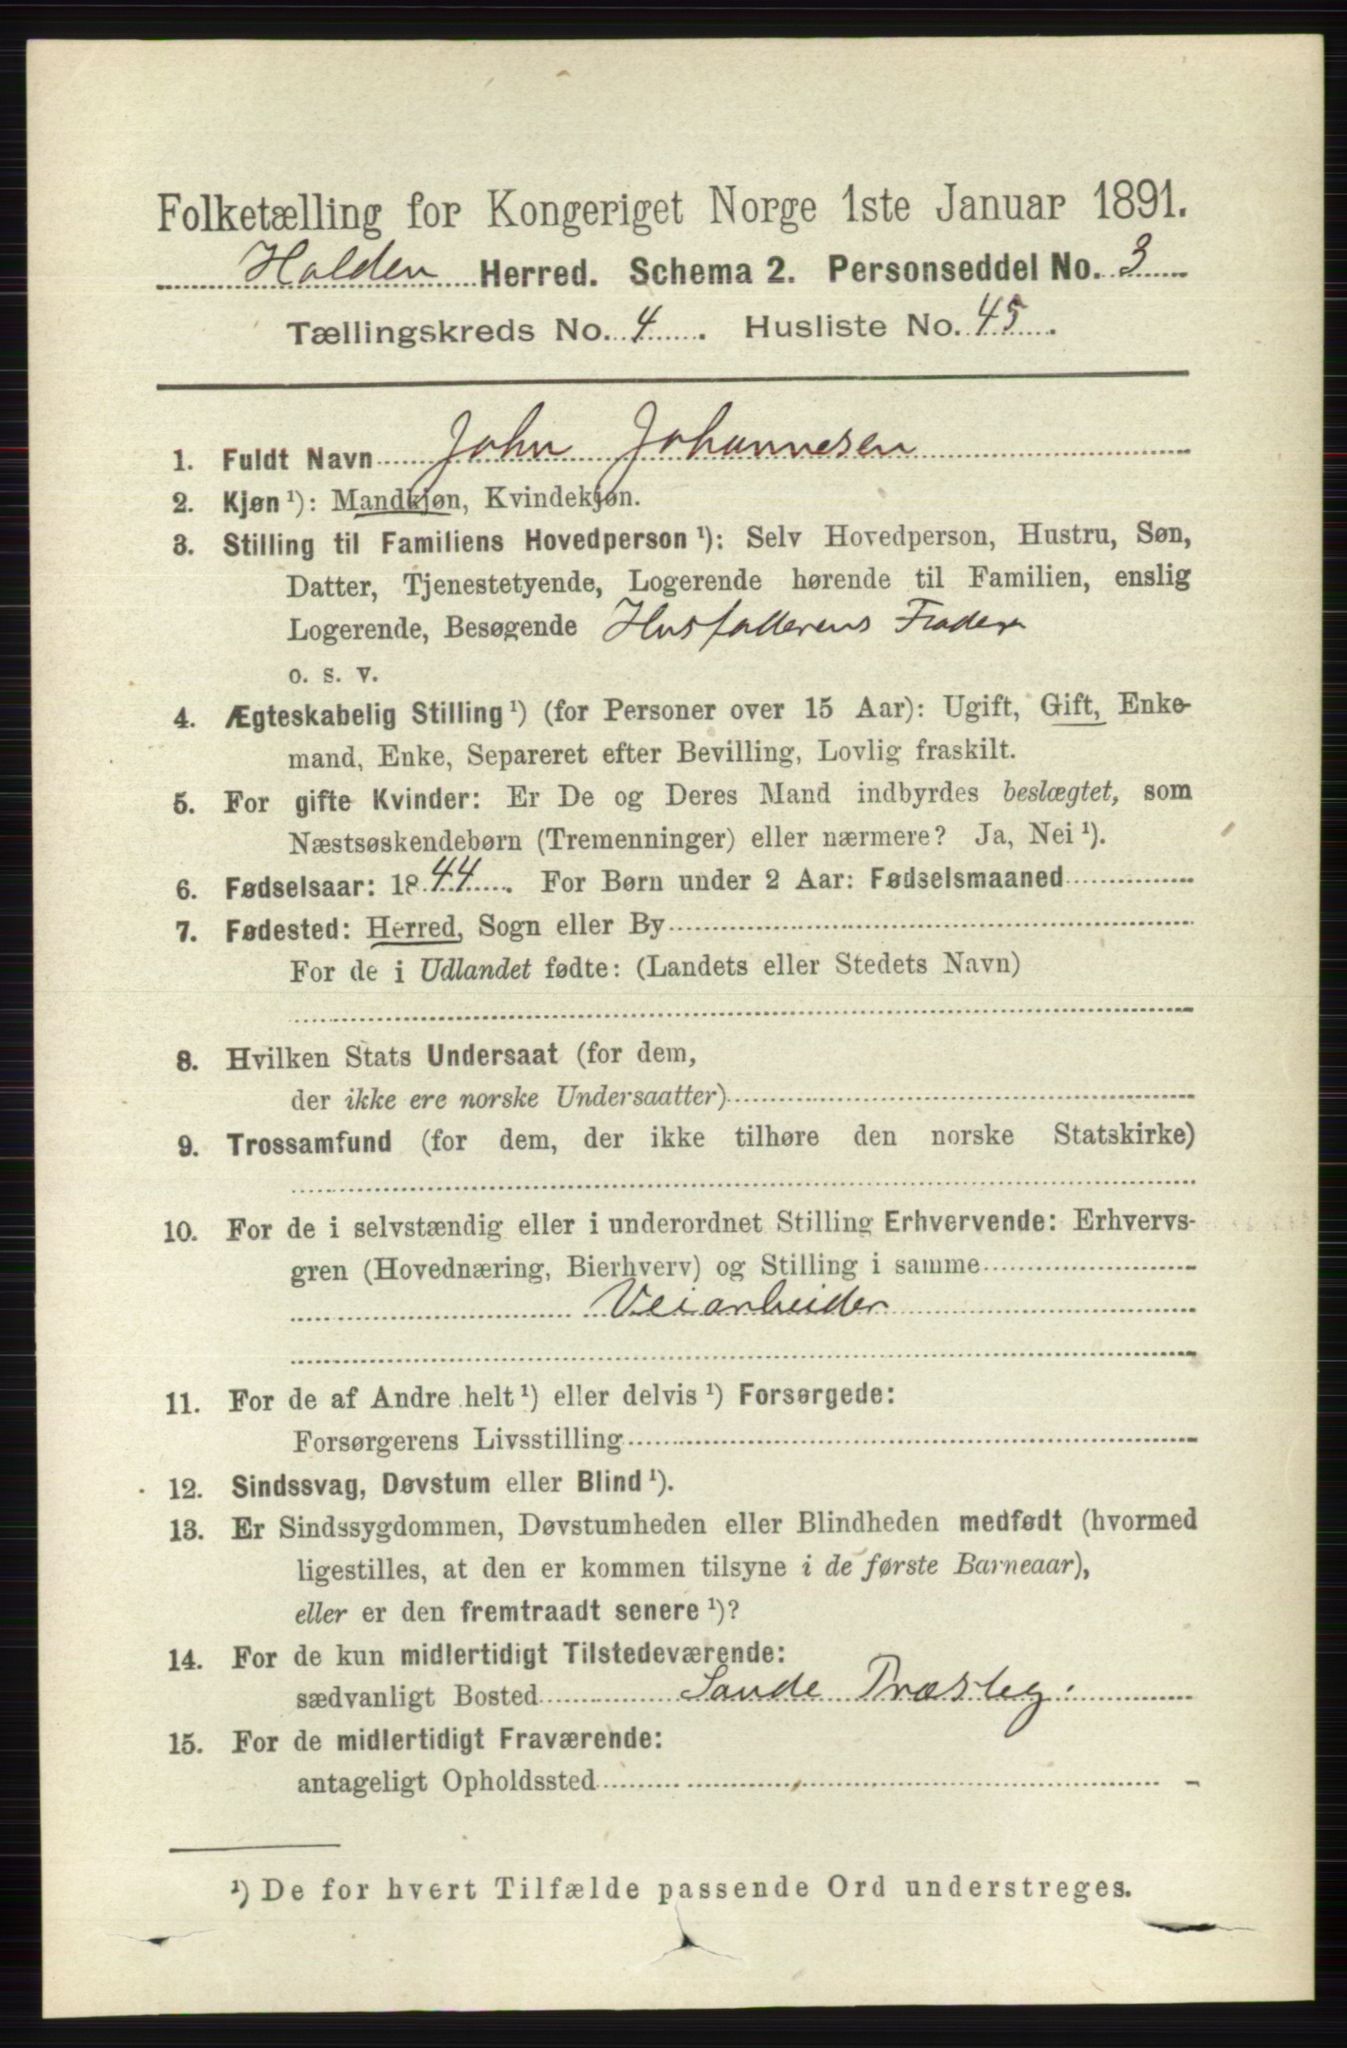 Folketælling for Kongeriget Norge 1ste Januar 1891.
Holden Herred. Schema 2. Personseddel No. 3
Tællingskreds No. 4. Husliste No. 45.
1. Fuldt Navn John Johannesen
2. Kjøn ¹): Mandkjøn, Kvindekjøn.
3. Stilling til Familiens Hovedperson ¹): Selv Hovedperson, Hustru, Søn,
Datter, Tjenestetyende, Logerende hørende til Familien, enslig
Logerende, Besøgende Husfaderens Fader
o. s. v.
4. Ægteskabelig Stilling ¹) (for Personer over 15 Aar): Ugift, Gift, Enke-
mand, Enke, Separeret efter Bevilling, Lovlig fraskilt.
5. For gifte Kvinder: Er De og Deres Mand indbyrdes beslægtet, som
Næstsøskendebørn (Tremenninger) eller nærmere? Ja, Nei ¹).
6. Fødselsaar: 1844. For Børn under 2 Aar: Fødselsmaaned
7. Fødested: Herred, Sogn eller By
For de i Udlandet fødte: (Landets eller Stedets Navn)
8. Hvilken Stats Undersaat (for dem,
der ikke ere norske Undersaatter)
9. Trossamfund (for dem, der ikke tilhøre den norske Statskirke)
10. For de i selvstændig eller i underordnet Stilling Erhvervende: Erhvervs-
gren (Hovednæring, Bierhverv) og Stilling i samme
Veiarbeider
11. For de af Andre helt ¹) eller delvis ¹) Forsørgede:
Forsørgerens Livsstilling
12. Sindssvag, Døvstum eller Blind ¹).
13. Er Sindssygdommen, Døvstumheden eller Blindheden medfødt (hvormed
ligestilles, at den er kommen tilsyne i de første Barneaar),
eller er den fremtraadt senere ¹)?
14. For de kun midlertidigt Tilstedeværende:
sædvanligt Bosted Sande Præsteg.
15. For de midlertidigt Fraværende:
antageligt Opholdssted
¹) De for hvert Tilfælde passende Ord understreges.